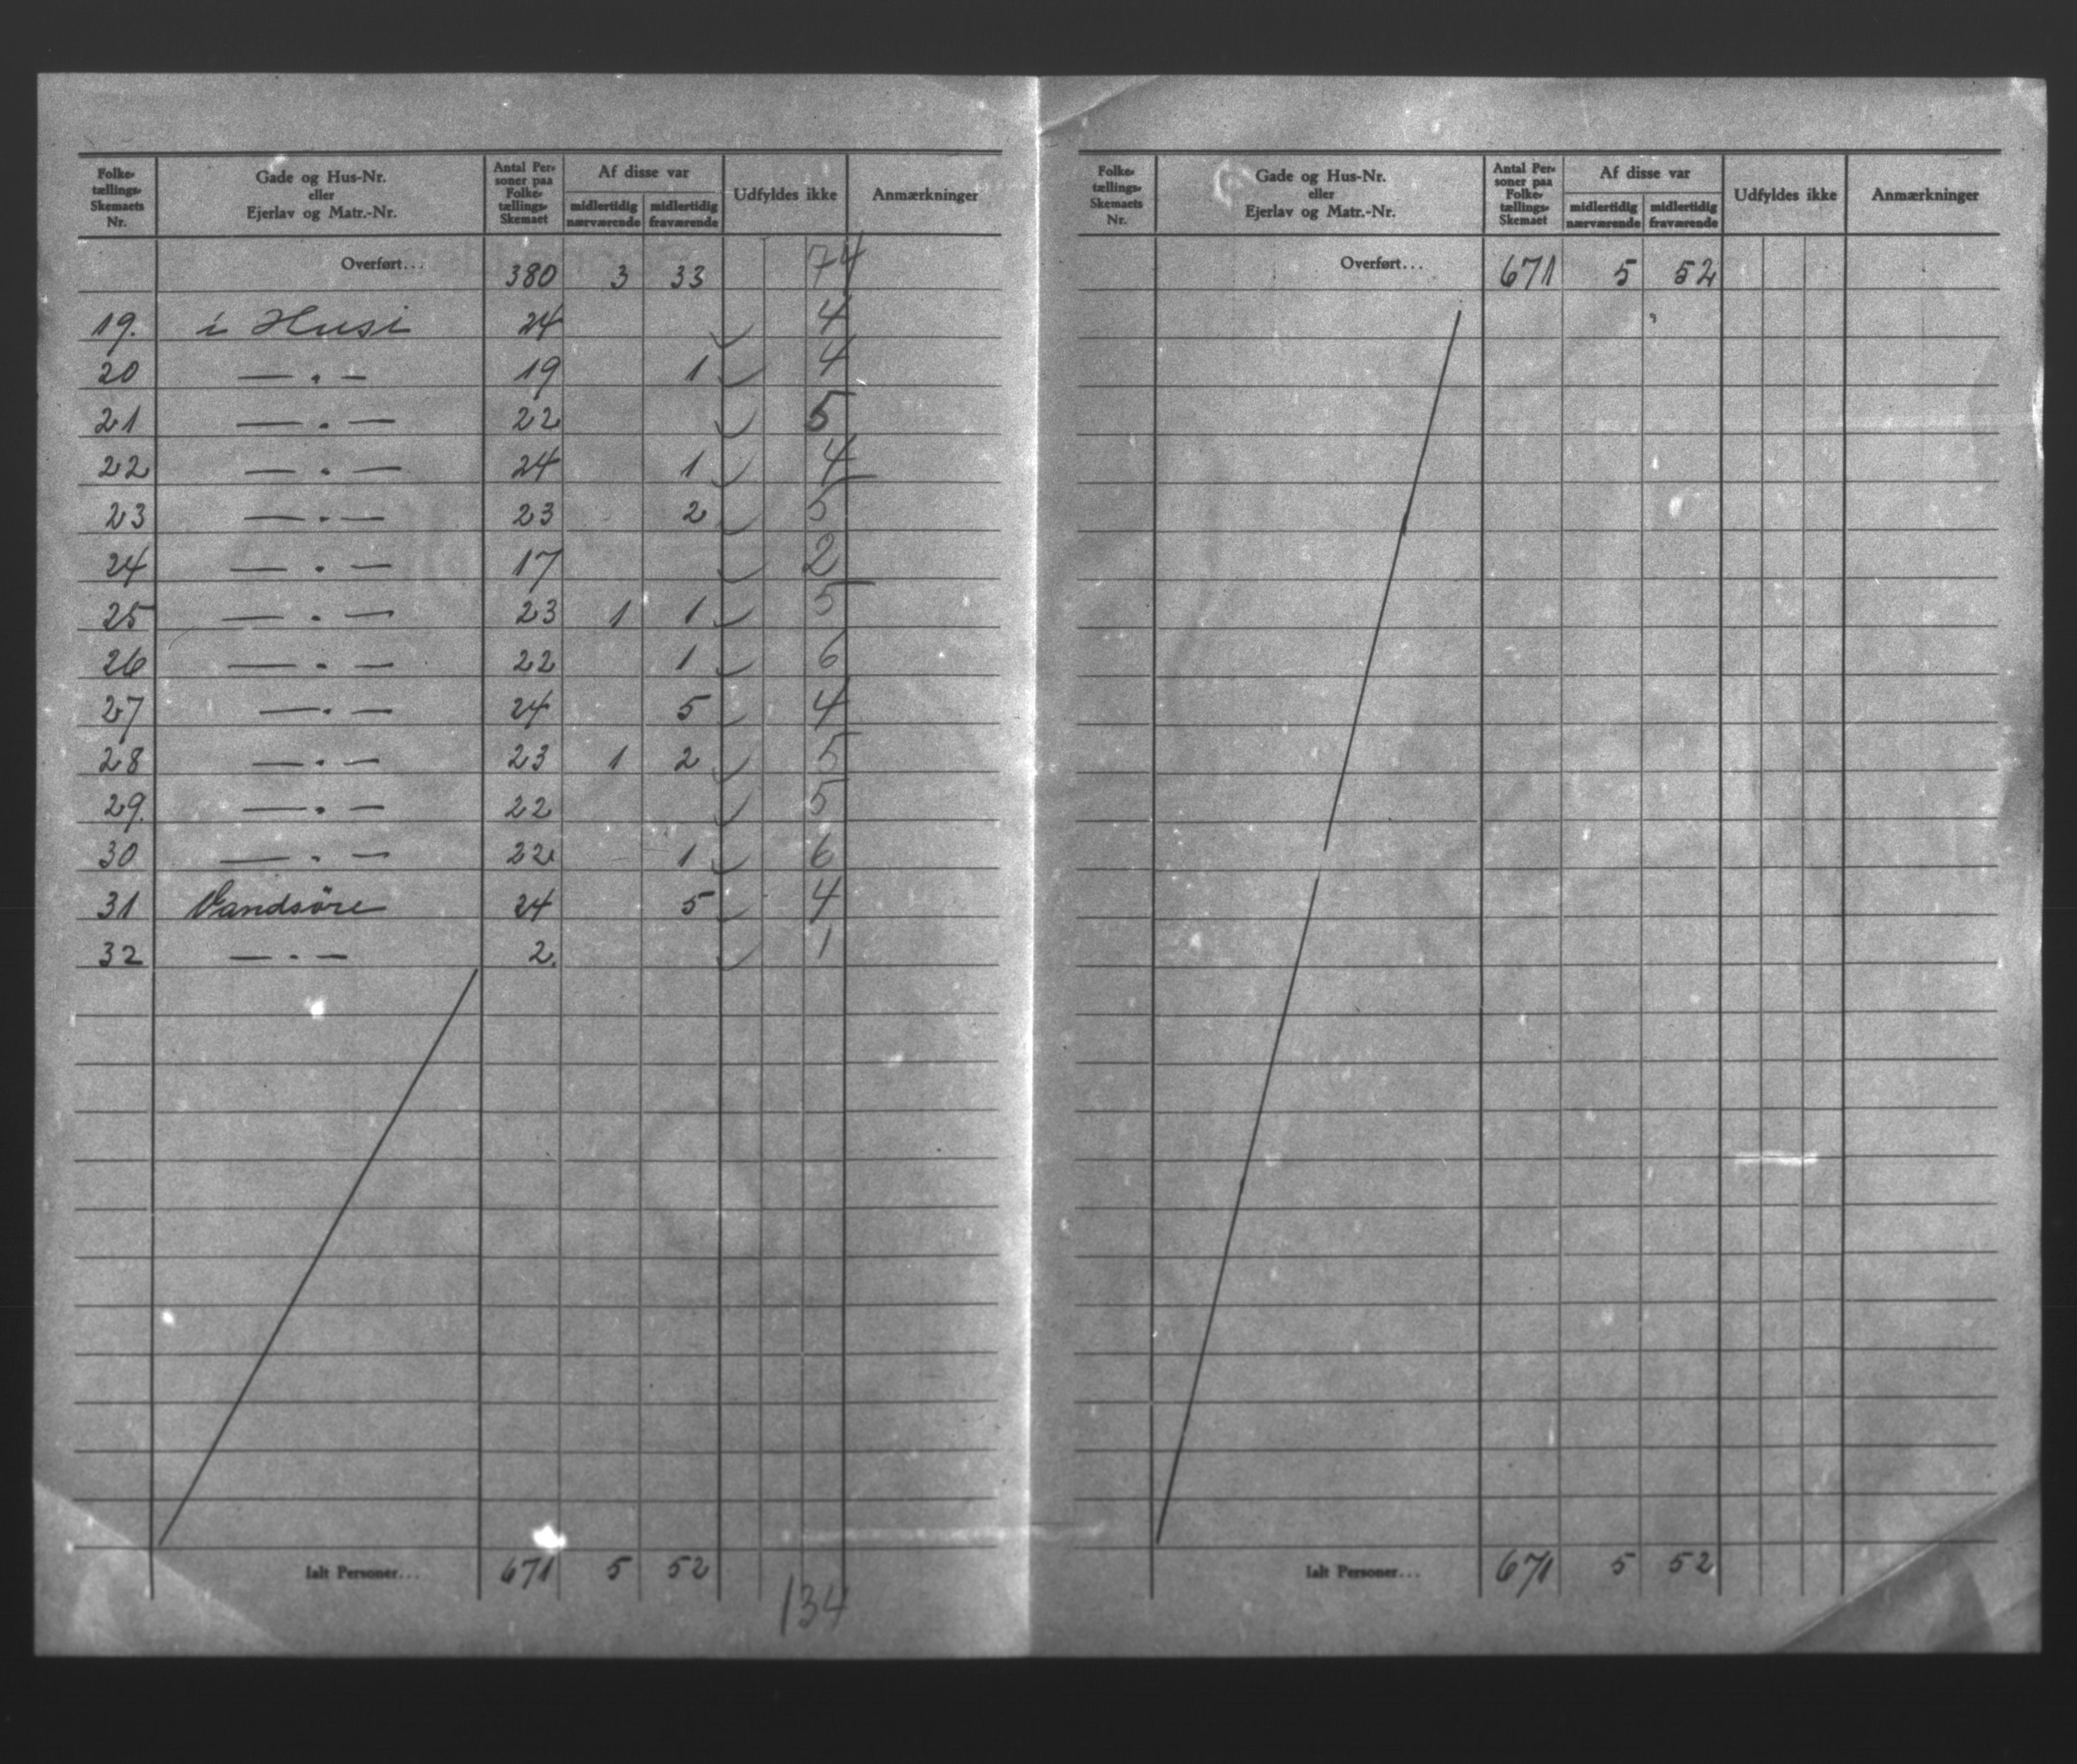 Folke-tællings-Skemaets Nr. | Gade og Hus-Nr. eller Ejerlav og Matr.-Nr. | Antal Personer paa Folketællings-Skemaet | Af disse var midlertidig nærværende | midlertidig fraværende | Udfyldes ikke | Anmærkninger
Overført... 380 3 33 74
19. i Husi 24 ✓ 4
20 — . — 19 1 ✓ 4
21 — . — 22 ✓ 5
22 — . — 24 1 ✓ 4
23 — . — 23 2 ✓ 5
24 — . — 17 ✓ 2
25 — . — 23 1 1 ✓ 5
26 — . — 22 1 ✓ 6
27 — . — 24 5 ✓ 4
28 — . — 23 1 2 ✓ 5
29. — . — 22 ✓ 5
30 — . — 22 1 ✓ 6
31 Vandsöre 24 5 ✓ 4
32 — . — 2. ✓ 1
Ialt Personer... 671 5 52
134
Folke-tællings-Skemaets Nr. | Gade og Hus-Nr. eller Ejerlav og Matr.-Nr. | Antal Personer paa Folketællings-Skemaet | Af disse var midlertidig nærværende | midlertidig fraværende | Udfyldes ikke | Anmærkninger
Overført... 671 5 52
Ialt Personer... 671 5 52